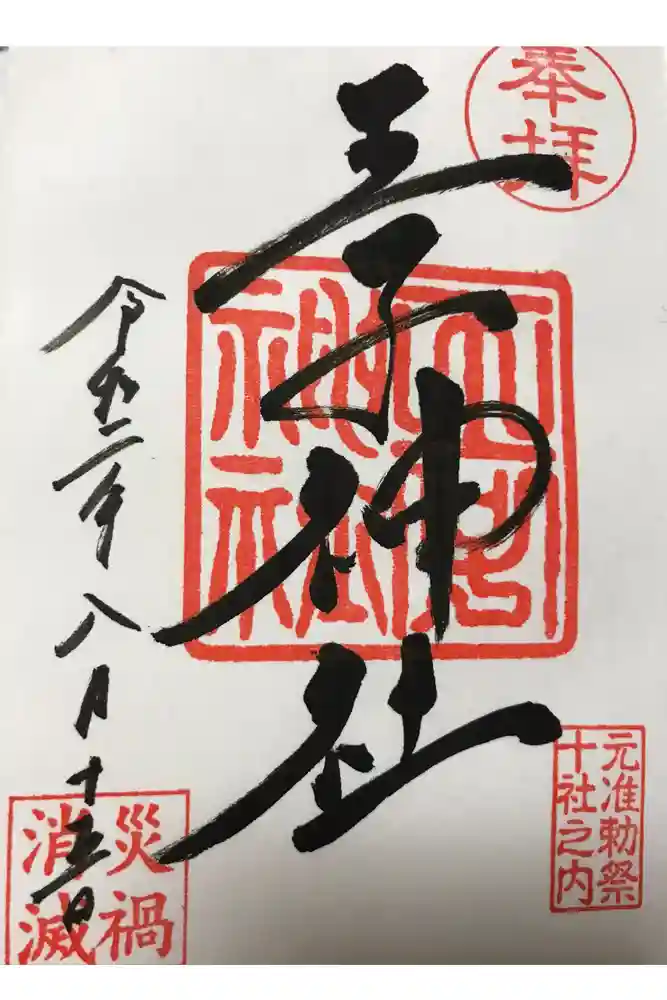 奉拝
元准勅祭
十社之内
王子神社
令和二年八月十五日
災禍
消滅